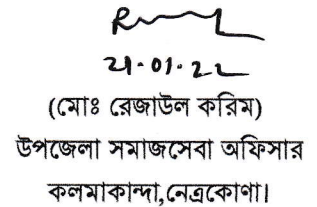 21.01.22
(মোঃ রেজাউল করিম)
উপজেলা সমাজসেবা অফিসার
কলমাকান্দা,নেত্রকোণা।